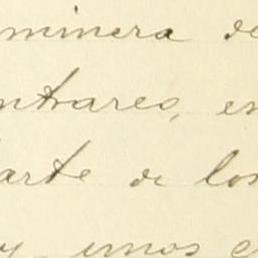 minera de
ntrares, en
arte de los
y unos e